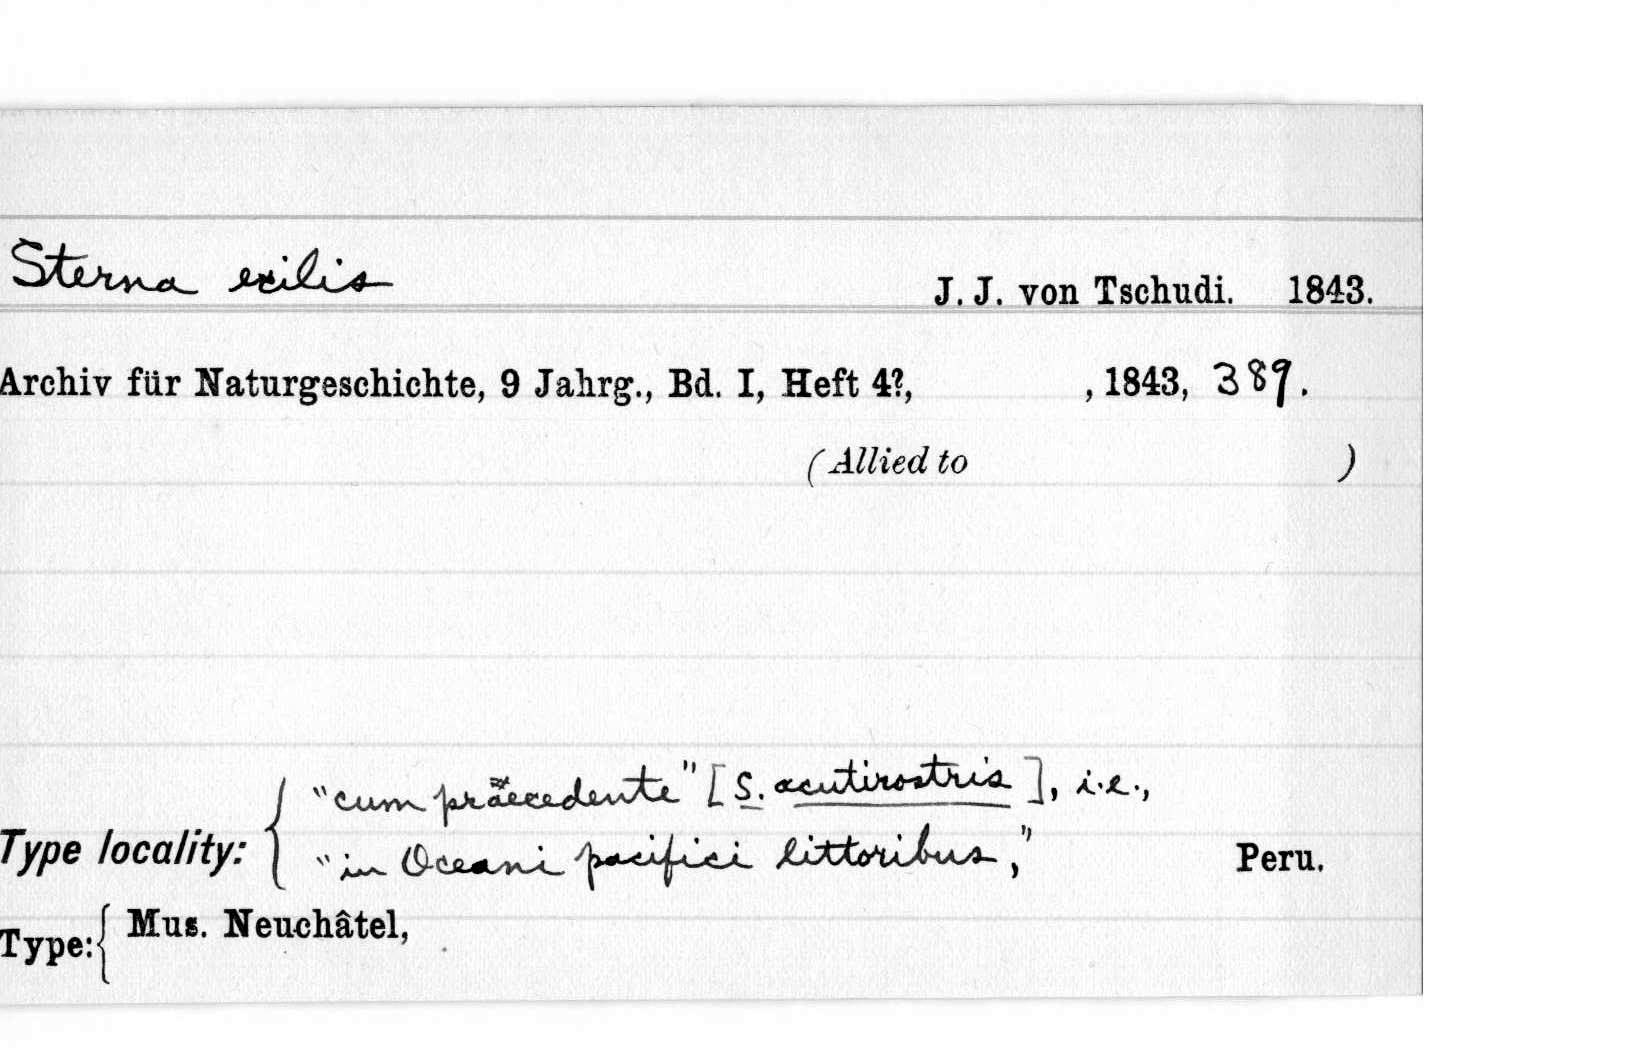 Sterna exilis J. J. von Tschudi. 1843.
Archiv für Naturgeschichte, 9 Jahrg., Bd. I, Heft 4?, , 1843, 389.
(Allied to )
"cum praecedente" [S. acutirostris], i.e.,
Type locality: { "in Oceani pacifici littoribus," Peru.
Type: { Mus. Neuchâtel,